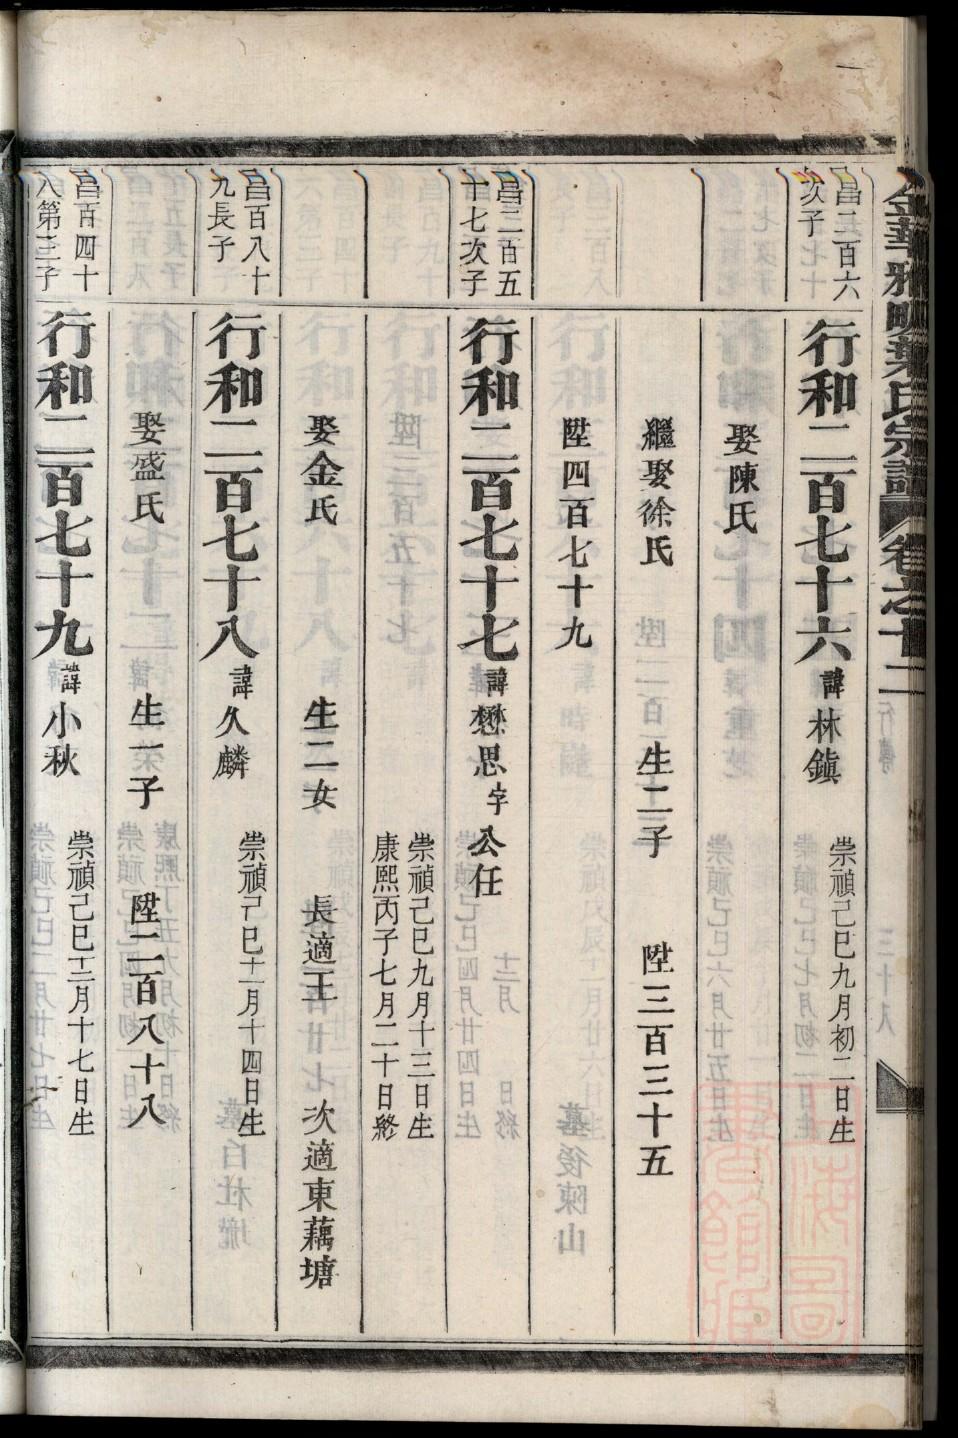 昌二百六
次子
行和二百七十六 諱林鎮 崇禎己巳九月初二日生
娶陳氏
繼娶徐氏 生二子 陞三百三十五
陞四百七十九
昌二百五
十七次子
行和二百七十七 諱懋思 字公任
崇禎己巳九月十三日生
康熙丙子七月二十日終
娶金氏 生二女 長適王 次適東藕塘
昌百八十
九長子
行和二百七十八 諱久麟 崇禎己巳十一月十四日生
娶盛氏 生一子 陞二百八十八
昌百四十
八第三子
行和二百七十九 諱小秋 崇禎己巳十二月十七日生